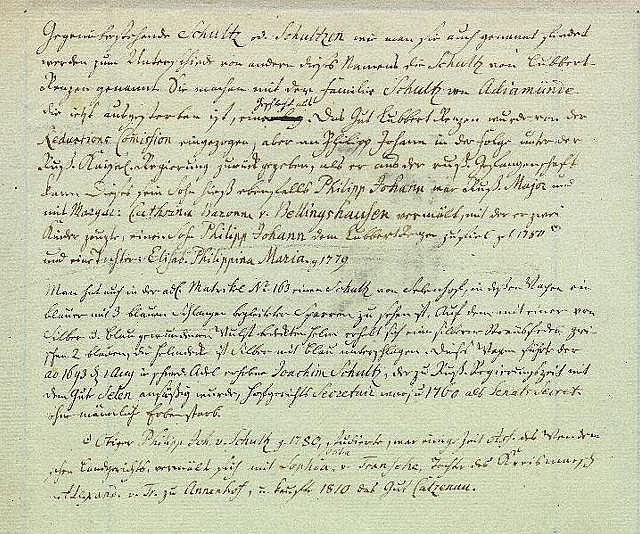 Gegenüberstehende Schultz od. Schultzen wie man sie auch genannt findet
werden zum Unterschiede von andern dieses Namens die Schultz von Lubbert-
Renzen genannt. Sie machen mit der Familie Schultz von Adiamünde
die jetzt ausgestorben ist, eine. Das Gut Lubbert Renzen wurde von der
Reductions Comission eingezogen, aber an Philipp Johann in der Folge unter der
Russ. Kayserl. Regierung zurück gegeben, als er aus der russ. Gefangenschaft
kam. Dieses sein Sohn hiess ebenfalls Philipp Johann war Russ. Major und
mit Margar: Cathrina Baronne v. Bedingshausen vermält, mit der er zwei
Kinder zeugte, einen Sohn Philipp Johann dem Lubbert Renzen zufiel
und eine Tochter: Elisab. Philippina Maria. g 1779
Man hat auch in der adl. Matrikel No 163 einen Schultz von, in dessen Wapen ein
blauer mit 3 blauen Schlangen begleiteter Sparren zu sehen ist. Auf dem mit einer von
Silber u. blau gewundenen Wulst bedekten Helm erhebt sich eine silberne zwi-
schen 2 blauen, die Helmdecke ist Silber mit blau unterschlagen. Dieses Wapen führte der
ao 1693 d. 1 Aug in schwed. Adel erhobene Joachim Schultz, der zu Russ. Regierungszeit mit
dem Gut Selen ansässig wurde, Hofgerichts Secretair war, u 1760 als Senats Secret.
ohne männlich Erben starb.
Philipp Joh. v. Schultz g. 1780, studierte, war einige Zeit Ass. des Wenden-
schen Landgerichts. vermält sich mit Sophia v. Transehe, Tochter des Kreismarsch
Alexand. v. Tr. zu Annenhof, u. kaufte 1810 das Gut Catzenau.